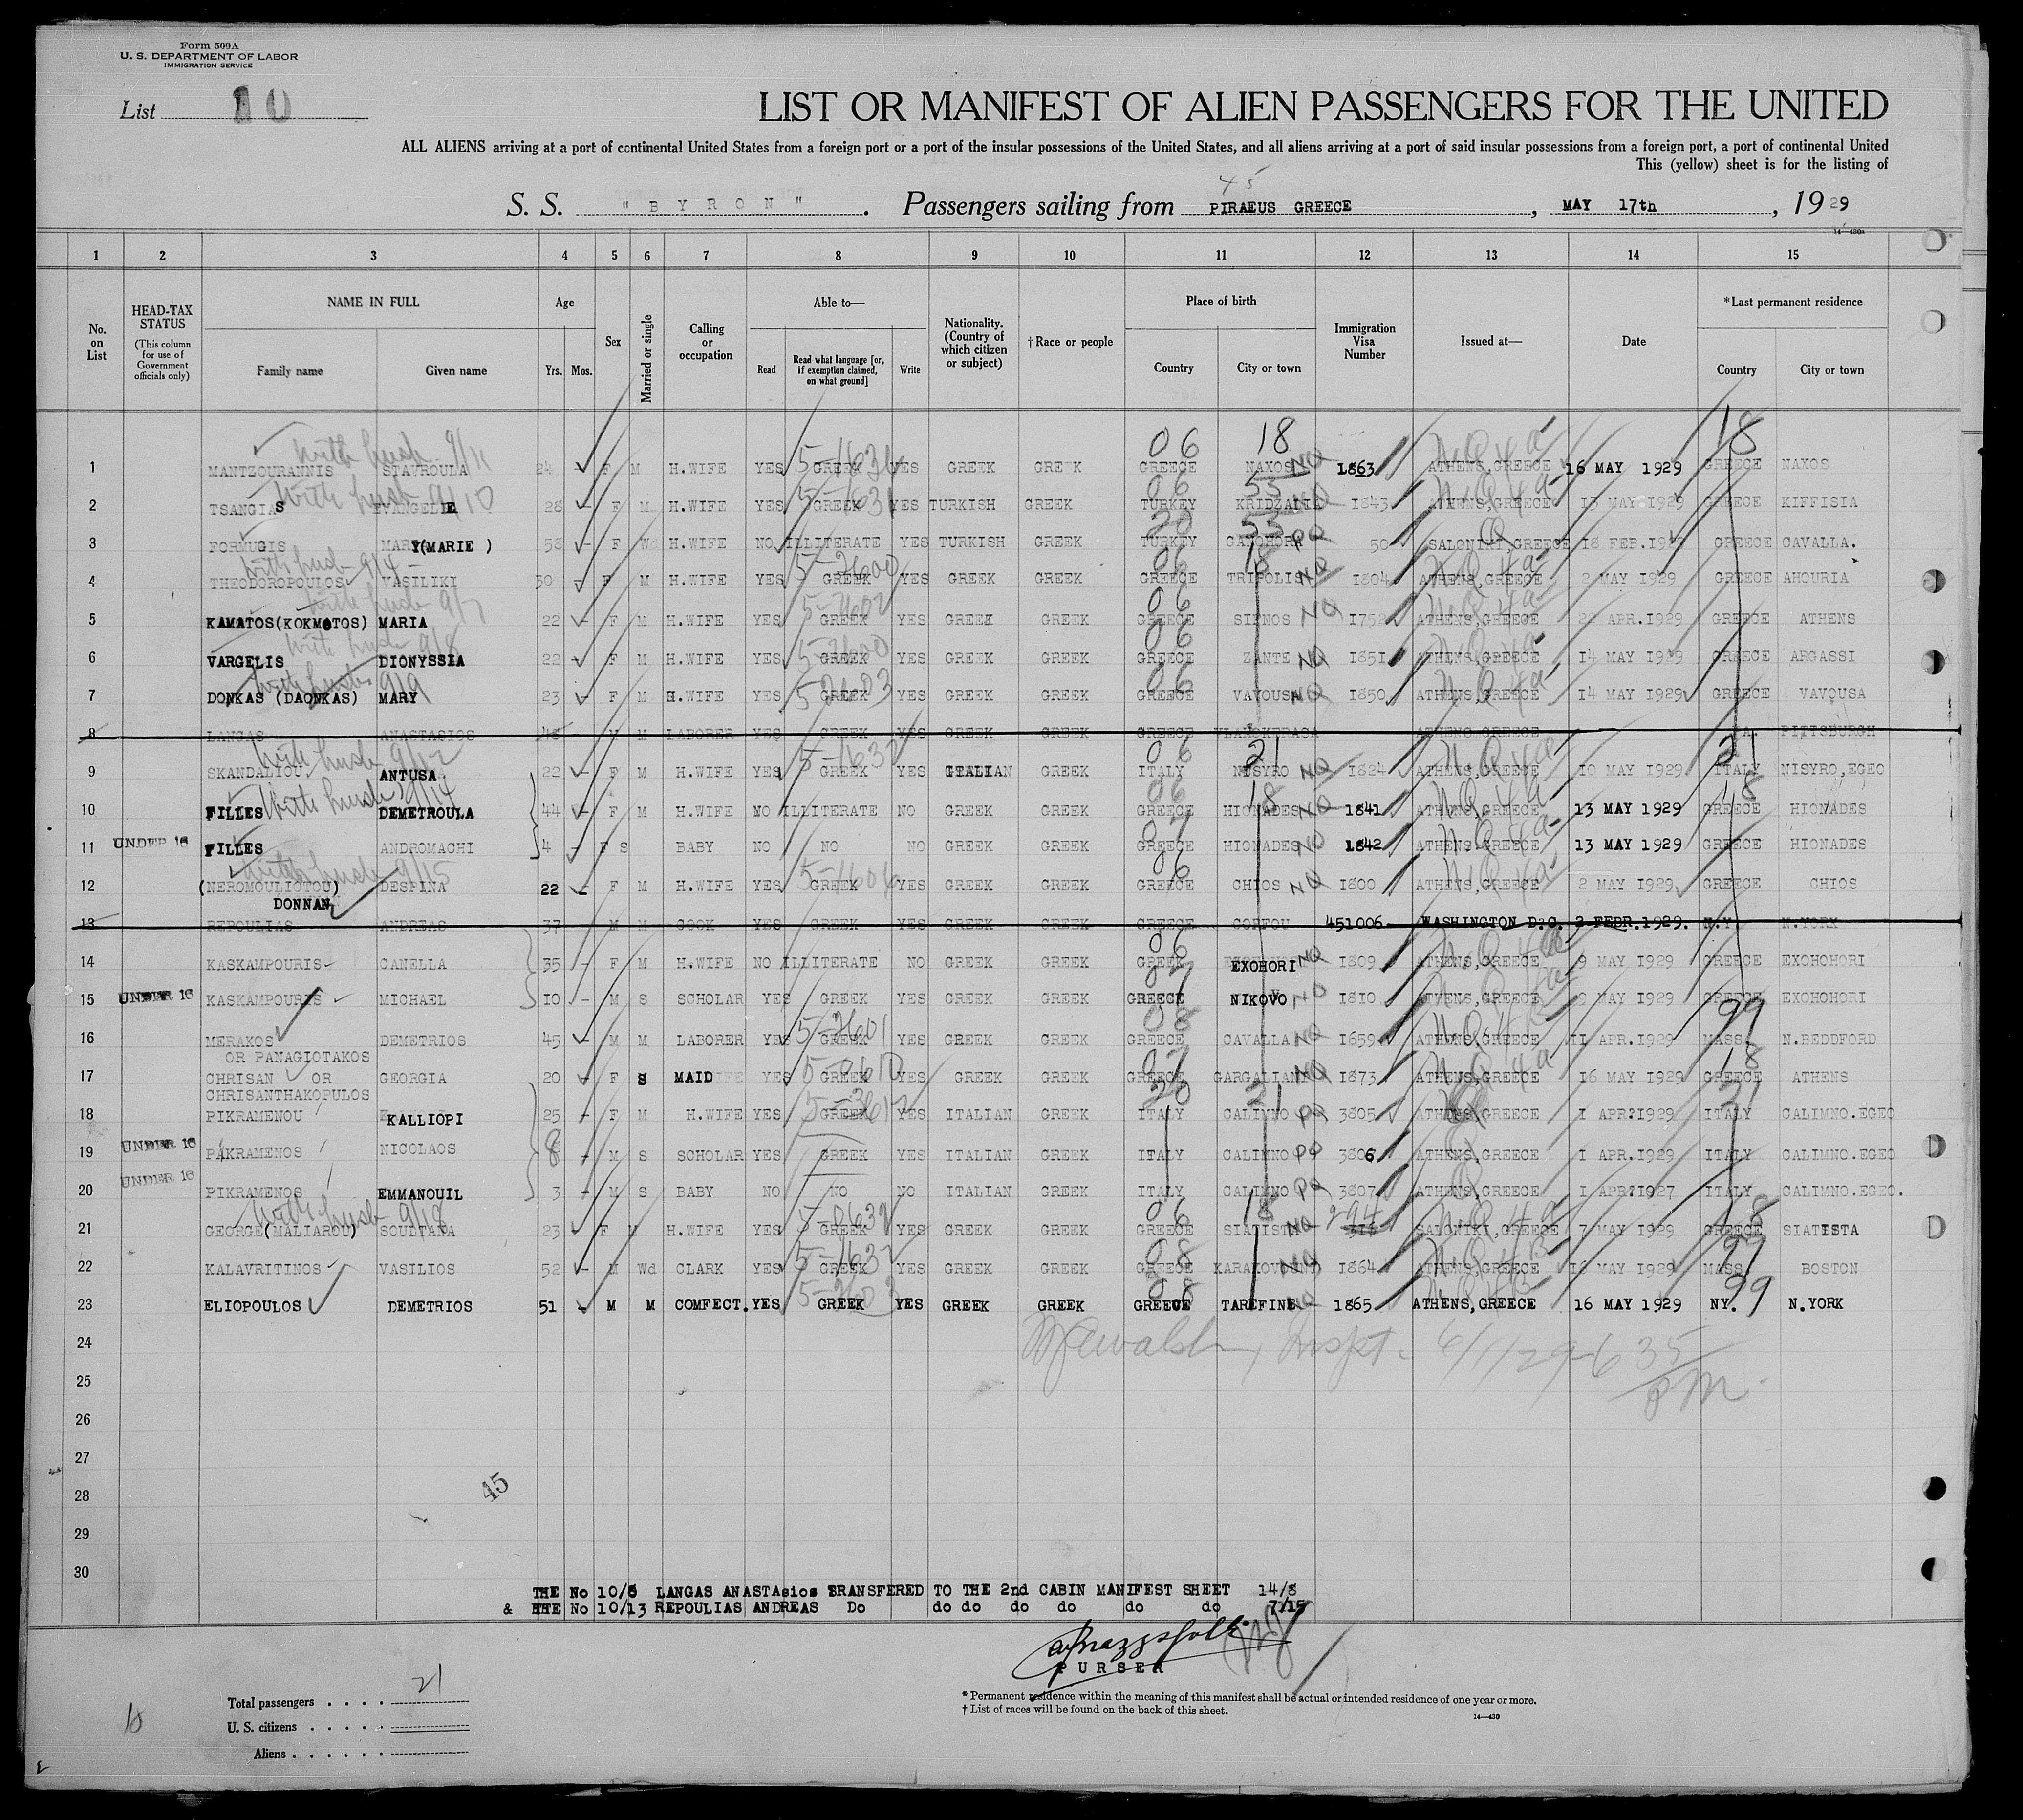 Form 500A
U. S. DEPARTMENT OF LABOR
IMMIGRATION SERVICE
List 10
LIST OR MANIFEST OF ALIEN PASSENGERS FOR THE UNITED
ALL ALIENS arriving at a port of continental United States from a foreign port or a port of the insular possessions of the United States, and all aliens arriving at a port of said insular possessions from a foreign port, a port of continental United
This (yellow) sheet is for the listing of
45
S. S. "BYRON". Passengers sailing from PIRAEUS GREECE, MAY 17th, 1929
14-430a
1 2 3 4 5 6 7 8 9 10 11 12 13 14 15
No. on List
HEAD-TAX STATUS (This column for use of Government officials only)
NAME IN FULL
Family name Given name
Age
Yrs. Mos.
Sex
Married or single
Calling or occupation
Able to—
Read
Read what language [or, if exemption claimed, on what ground]
Write
Nationality. (Country of which citizen or subject)
†Race or people
Place of birth
Country City or town
Immigration Visa Number
Issued at—
Date
*Last permanent residence
Country City or town
with husb 9/11 5-1631 06 18 NQ 4a 18
1 MANTZOURANNIS STAVROULA 24 F M H.WIFE YES GREEK YES GREEK GREEK GREECE NAXOS NQ 1863 ATHENS,GREECE 16 MAY 1929 GREECE NAXOS
with husb 9/10 5-1631 06 53 NQ 4a
2 TSANGIAS EVANGELIE 28 F M H.WIFE YES GREEK YES TURKISH GREEK TURKEY 1843 ATHENS,GREECE 13 MAY 1929 GREECE KIFFISIA
20 53 Q
3 FORMUGIS MARY(MARIE ) 58 F Wd H.WIFE NO ILLITERATE YES TURKISH GREEK TURKEY PQ 50 SALONIKI,GREECE 18 FEB. GREECE CAVALLA.
with husb 9/4 5-2600 06 18 NQ 4a
4 THEODOROPOULOS VASILIKI 30 F M H.WIFE YES GREEK YES GREEK GREEK GREECE TRIPOLIS NQ 1804 ATHENS,GREECE 2 MAY 1929 GREECE AHOURIA
with husb 9/7 5-2602 06 NQ 4a
5 KAMATOS(KOKMOTOS) MARIA 22 F M H.WIFE YES GREEK YES GREEK GREEK GREECE SIFNOS NQ 1752 ATHENS,GREECE APR.1929 GREECE ATHENS
with husb 9/8 5-2600 06 NQ 4a
6 VARGELIS DIONYSSIA 22 F M H.WIFE YES GREEK YES GREEK GREEK GREECE ZANTE NQ 1851 ATHENS,GREECE 14 MAY 1929 GREECE ARGASSI
with husb 9/9 5-2603 06 NQ 4a
7 DONKAS (DAONKAS) MARY 23 F M H.WIFE YES GREEK YES GREEK GREEK GREECE VAVOUSA NQ 1850 ATHENS,GREECE 14 MAY 1929 GREECE VAVOUSA
8 LANGAS ANASTASIOS M M LABORER YES GREEK YES GREEK GREEK GREECE ATHENS GREECE PITTSBURGH
with husb 9/12 5-1632 06 21 NQ 4a 21
9 SKANDALIOU ANTUSA 22 F M H.WIFE YES GREEK YES ITALIAN GREEK ITALY NISYRO NQ 1824 ATHENS,GREECE 10 MAY 1929 ITALY NISYRO,EGEO
with husb 9/14 06 18 NQ 4a 18
10 FILLES DEMETROULA 44 F M H.WIFE NO ILLITERATE NO GREEK GREEK GREECE HIONADES NQ 1841 ATHENS,GREECE 13 MAY 1929 GREECE HIONADES
07 NQ 4a
11 UNDER 16 FILLES ANDROMACHI 4 F S BABY NO NO NO GREEK GREEK GREECE HIONADES NQ 1842 ATHENS,GREECE 13 MAY 1929 GREECE HIONADES
with husb 9/15 5-1606 06 NQ 4a
12 (NEROMOULIOTOU) DESPINA 22 F M H.WIFE YES GREEK YES GREEK GREEK GREECE CHIOS NQ 1800 ATHENS,GREECE 2 MAY 1929 GREECE CHIOS
DONNAN
13 REPOULIAS ANDREAS 37 M M COOK YES GREEK YES GREEK GREEK GREECE CORFOU 451006 WASHINGTON D.C. 2 FEBR.1929. N.Y N.YORK
06 NQ 4a
14 KASKAMPOURIS CANELLA 35 F M H.WIFE NO ILLITERATE NO GREEK GREEK GREECE EXOHORI NQ 1809 ATHENS,GREECE 9 MAY 1929 GREECE EXOHOHORI
07 NQ 4a
15 UNDER 16 KASKAMPOURIS MICHAEL 10 M S SCHOLAR YES GREEK YES GREEK GREEK GREECE NIKOVO NO 1810 ATHENS,GREECE 9 MAY 1929 GREECE EXOHOHORI
5-2601 08 NQ 4B 99
16 MERAKOS DEMETRIOS 45 M M LABORER YES GREEK YES GREEK GREEK GREECE CAVALLA NQ 1659 ATHENS,GREECE 11 APR.1929 MASS N.BEDDFORD
OR PANAGIOTAKOS
07 NQ 4a 18
17 CHRISAN OR GEORGIA 20 F S MAID YES GREEK YES GREEK GREEK GREECE GARGALIANI NQ 1873 ATHENS,GREECE 16 MAY 1929 GREECE ATHENS
CHRISANTHAKOPULOS
20 21 Q 21
18 PIKRAMENOU KALLIOPI 25 F M H.WIFE YES GREEK YES ITALIAN GREEK ITALY CALIMNO PQ 3805 ATHENS,GREECE 1 APR.1929 ITALY CALIMNO.EGEO
19 UNDER 16 PIKRAMENOS NICOLAOS 8 M S SCHOLAR YES GREEK YES ITALIAN GREEK ITALY CALIMNO PQ 3806 ATHENS,GREECE 1 APR.1929 ITALY CALIMNO.EGEO
20 UNDER 16 PIKRAMENOS EMMANOUIL 3 M S BABY NO NO NO ITALIAN GREEK ITALY CALIMNO PQ 3807 ATHENS,GREECE 1 APR.1927 ITALY CALIMNO.EGEO.
with husb 9/18 06 18 NQ 4a 18
21 GEORGE(MALIAROU) SOULTANA 23 F M H.WIFE YES GREEK YES GREEK GREEK GREECE SIATISTA NQ 294 SALONIKI,GREECE 7 MAY 1929 GREECE SIATISTA
5-1632 08 NQ 4B 99
22 KALAVRITINOS VASILIOS 52 M Wd CLARK YES GREEK YES GREEK GREEK GREECE NQ 1864 ATHENS,GREECE MAY 1929 MASS BOSTON
5-2603 08 NQ 4B 99
23 ELIOPOULOS DEMETRIOS 51 M M COMFECT. YES GREEK YES GREEK GREEK GREECE 1865 ATHENS,GREECE 16 MAY 1929 NY. N.YORK
24 Inspt. 6/1/29-6 35 PM
25
26
27
28
29
30
45
THE No 10/8 LANGAS ANASTAsios TRANSFERED TO THE 2nd CABIN MANIFEST SHEET 14/8
& THE No 10/13 REPOULIAS ANDREAS Do do do do do do do 7/15
PURSER
Total passengers 21
U. S. citizens
Aliens
10
* Permanent residence within the meaning of this manifest shall be actual or intended residence of one year or more.
† List of races will be found on the back of this sheet.
14-430